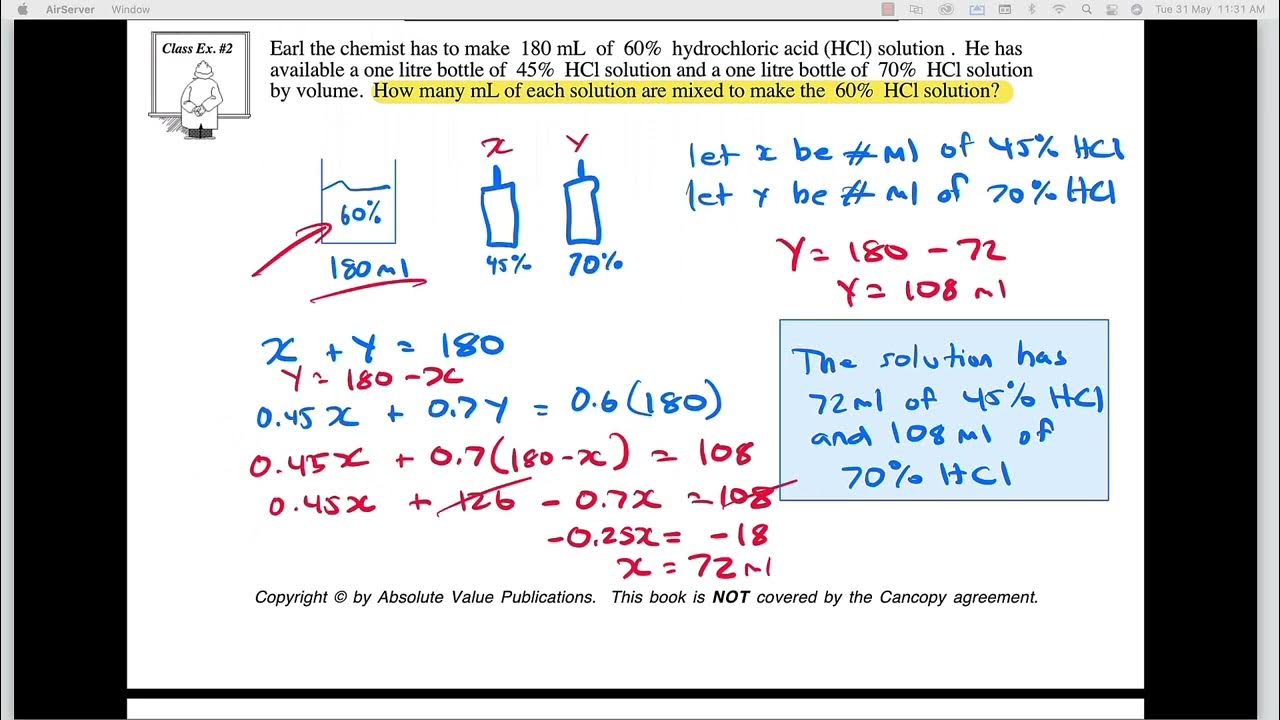 AirServer Window Tue 31 May 11:31 AM
Class Ex. #2
Earl the chemist has to make 180 mL of 60% hydrochloric acid (HCl) solution . He has
available a one litre bottle of 45% HCl solution and a one litre bottle of 70% HCl solution
by volume. How many mL of each solution are mixed to make the 60% HCl solution?
x Y
60%
180 ml
45% 70%
let x be # ml of 45% HCl
let Y be # ml of 70% HCl
Y = 180 - 72
Y = 108 ml
x + Y = 180
Y = 180 - x
0.45x + 0.7Y = 0.6(180)
0.45x + 0.7(180-x) = 108
0.45x + 126 - 0.7x = 108
-0.25x = -18
x = 72 ml
The solution has
72ml of 45% HCl
and 108 ml of
70% HCl
Copyright © by Absolute Value Publications. This book is NOT covered by the Cancopy agreement.